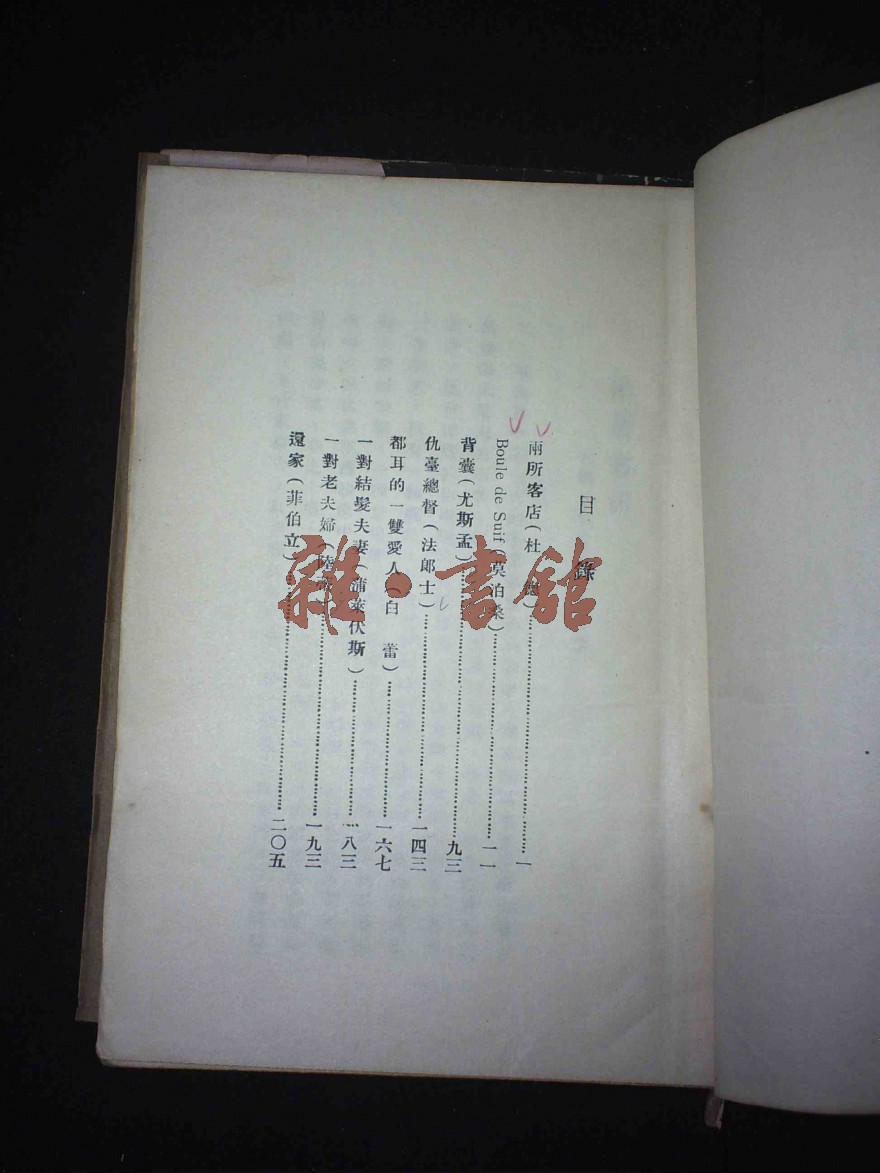 目錄
兩所客店(杜 )……一
Boule de Suif(莫泊桑)……一一
背囊(尤斯孟)……九三
仇臺總督(法郎士)……一四三
都耳的一雙愛人(白 蕾)……一六七
一對結髮夫妻(蒲萊伏斯)……八三
一對老夫婦(陸 )……一九三
還家(菲伯立)……二〇五
雜·書館